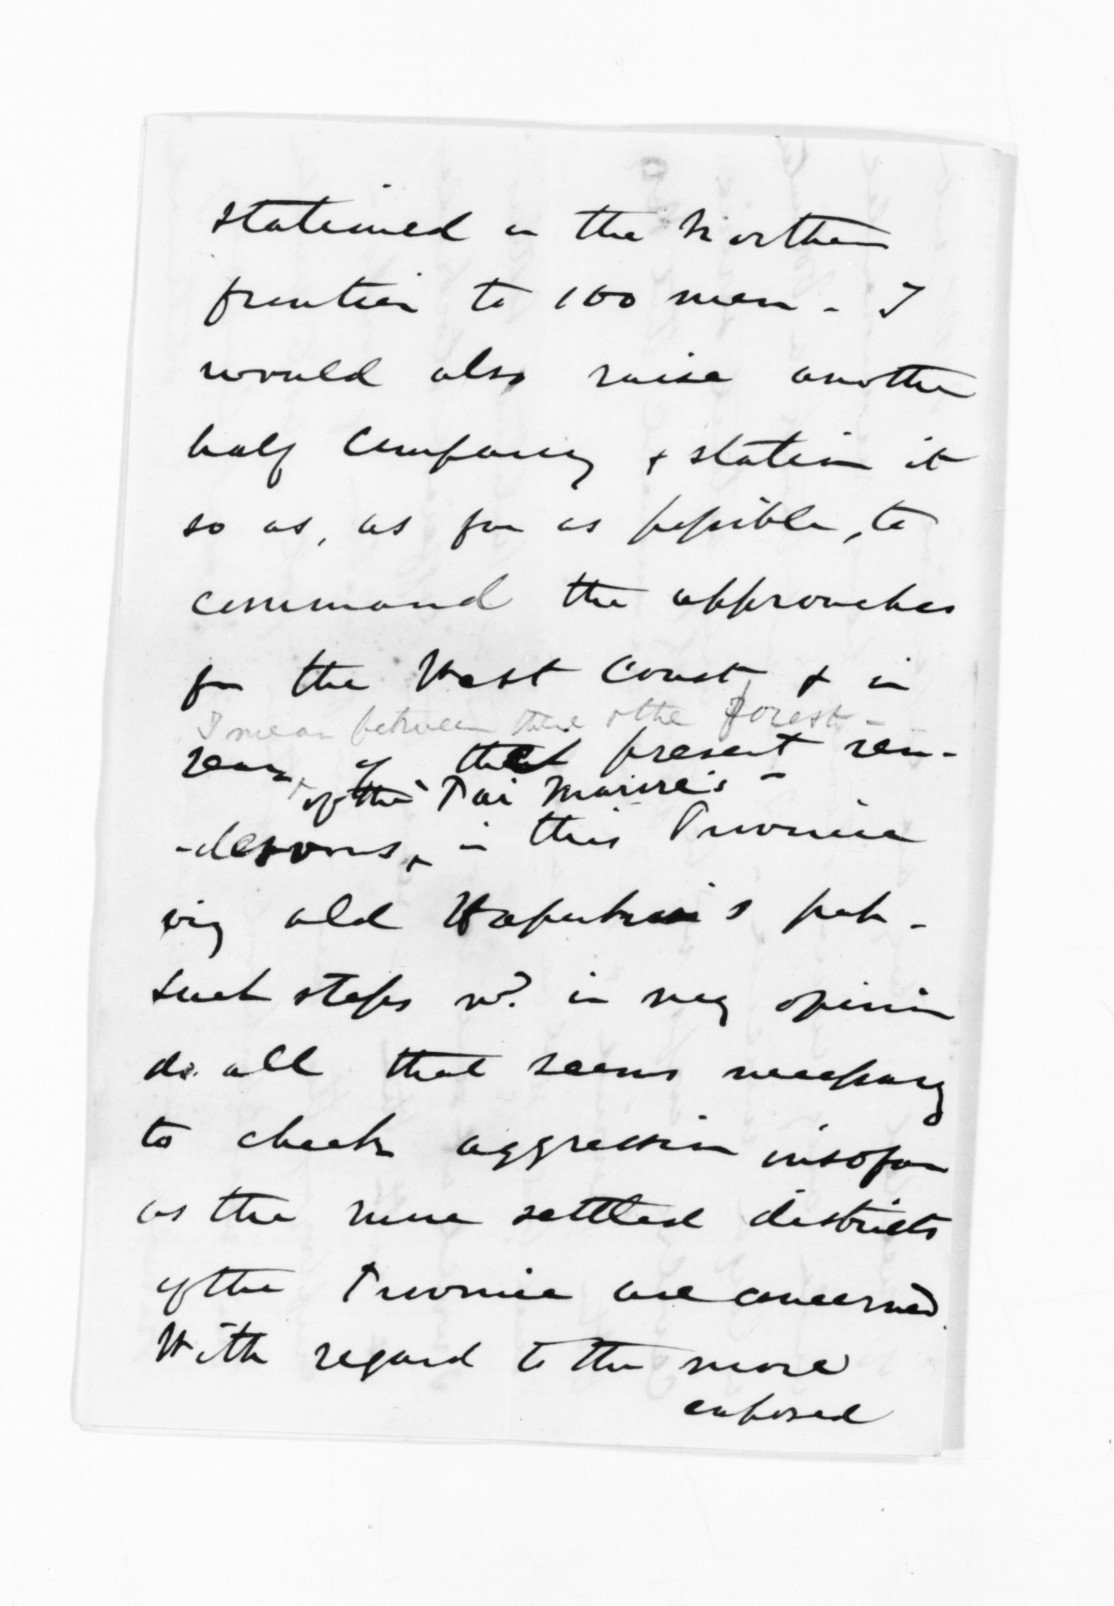 stationed on the Northern
frontier to 100 men - I
would also raise another
half Company & station it
so as, as far as possible, to
command the approaches
fm the West Coast & in
I mean between there & the Forest -
rear of the present ren-
& of the Pai Marire's -
-dezvous, in this Province
viz old pah -
Such steps wd. in my opinion
do all that seems necessary
to check aggression insofar
as the more settled districts
of the Province are concerned.
With regard to the more
exposed